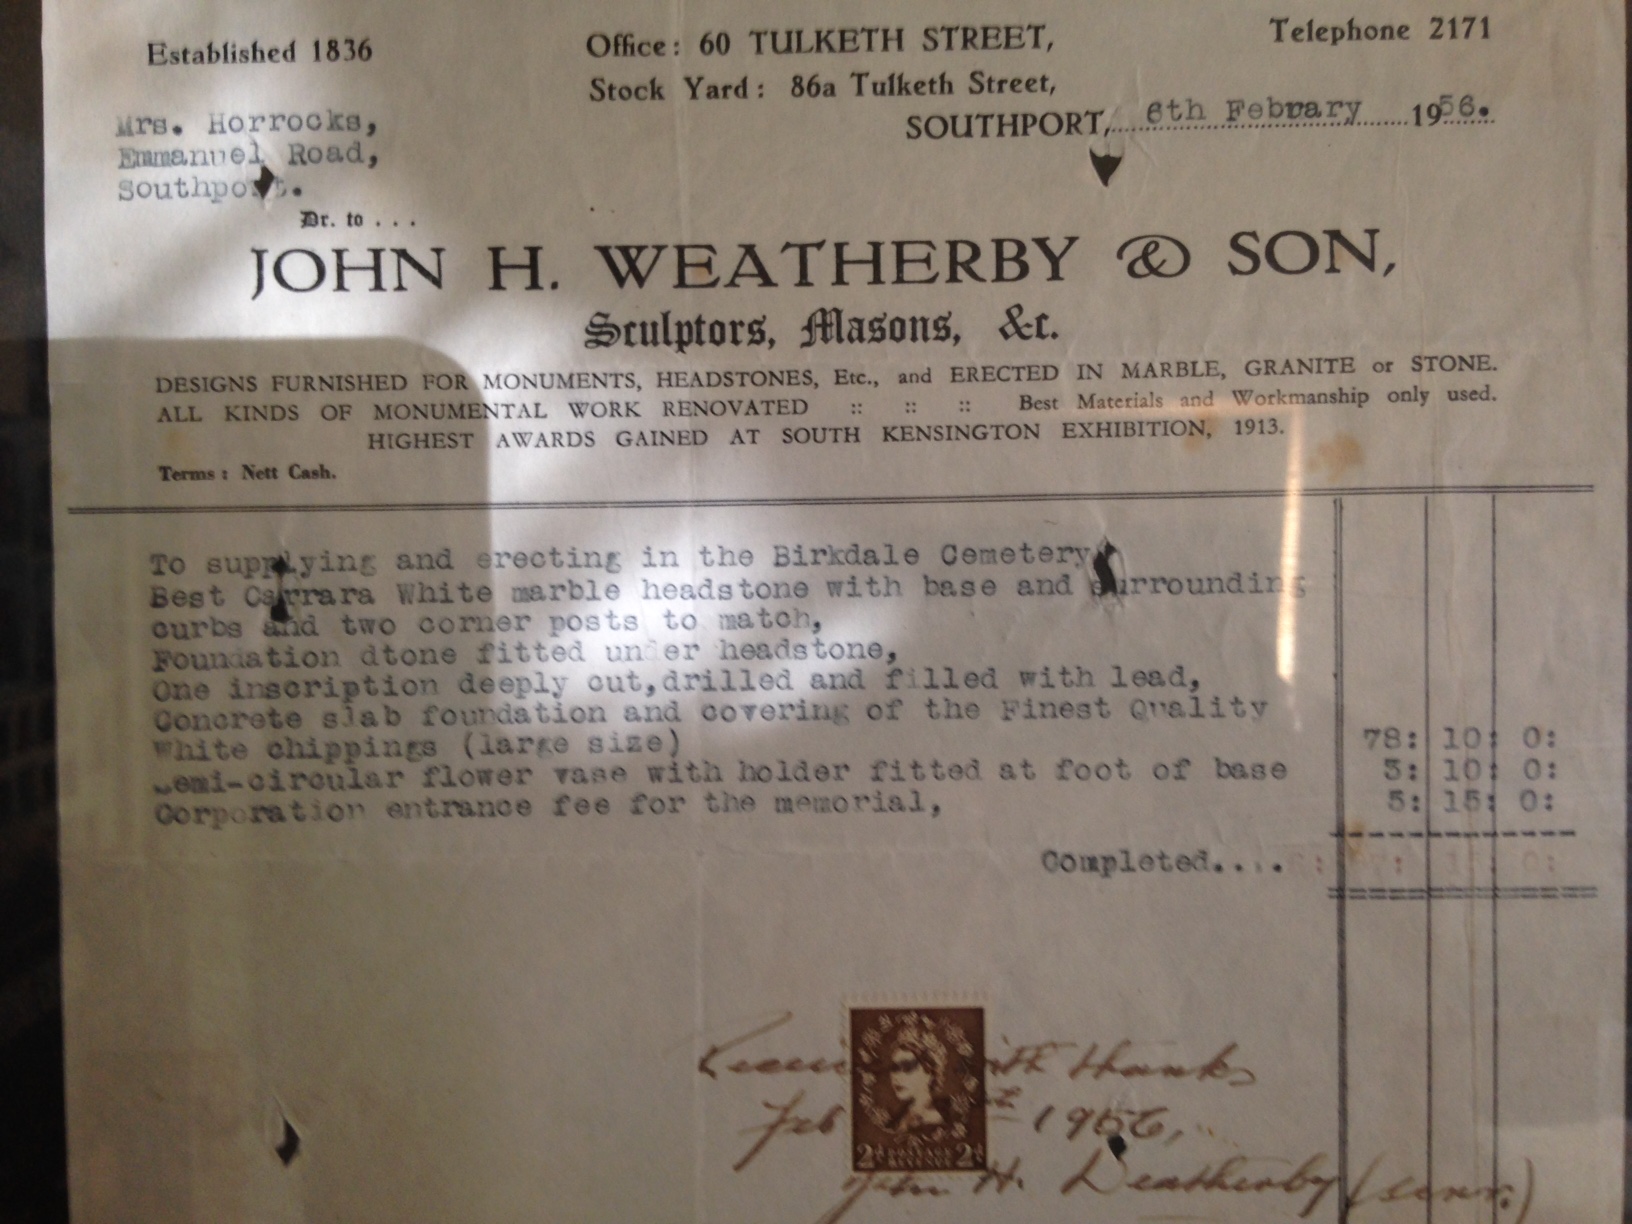 Established 1836
Office: 60 TULKETH STREET,
Telephone 2171
Stock Yard: 86a Tulketh Street,
SOUTHPORT, 6th February 1956.
Mrs. Horrocks,
Emmanuel Road,
Southport.
Dr. to ...
JOHN H. WEATHERBY & SON,
Sculptors, Masons, &c.
DESIGNS FURNISHED FOR MONUMENTS, HEADSTONES, Etc., and ERECTED IN MARBLE, GRANITE or STONE.
ALL KINDS OF MONUMENTAL WORK RENOVATED :: :: :: Best Materials and Workmanship only used.
HIGHEST AWARDS GAINED AT SOUTH KENSINGTON EXHIBITION, 1913.
Terms: Nett Cash.
To supplying and erecting in the Birkdale Cemetery
Best Carrara White marble headstone with base and surrounding
curbs and two corner posts to match,
Foundation dtone fitted under headstone,
One inscription deeply cut,drilled and filled with lead,
Concrete slab foundation and covering of the Finest Quality
White chippings (large size) 78: 10: 0:
Semi-circular flower vase with holder fitted at foot of base 3: 10: 0:
Corporation entrance fee for the memorial, 5: 15: 0:
Completed....
with thanks
Feb 1956,
2d POSTAGE REVENUE 2d
John H. Weatherby (senr.)